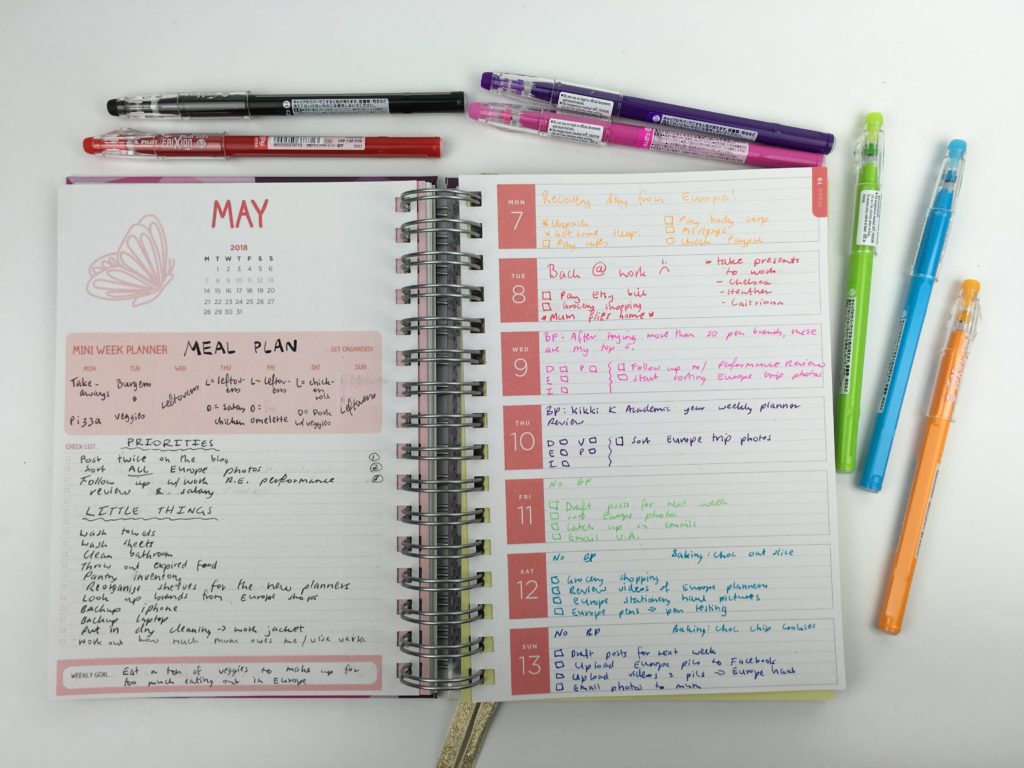 PILOT FRIXION
MAY
2018
M T W T F S S
1 2 3 4 5 6
7 8 9 10 11 12 13
14 15 16 17 18 19 20
21 22 23 24 25 26 27
28 29 30 31
MINI WEEK PLANNER MEAL PLAN ...GET ORGANISED!
MON TUE WED THU FRI SAT SUN
Take-aways
Pizza
Burgers
veggies
leftovers
L= leftovers
D= satay chicken
L= leftovers
D= omelette
L= chicken roll
D= Pork w/veggies
leftovers
CHECK LIST... PRIORITIES
Post twice on the blog 1
Sort ALL Europe photos 2
Follow up w/work R.E. performance
review & salary
LITTLE THINGS
wash towels
wash sheets
clean bathroom
Throw out expired food
Pantry inventory
Reorganise shelves for the new planners
Look up brands from Europe shops
Backup iphone
Backup laptop
Put in dry cleaning → work jacket
work out how much mum owes me/vise versa
WEEKLY GOAL... Eat a ton of veggies to make up for
too much eating out in Europe
Week 19
MON
7
Recovery day from Europe!
* Unpack
* Get some sleep!
Pay body corp
Mortgage
Check Paypal
TUE
8
Back @ work
Pay Etsy bill
Grocery shopping
* Mum flies home *
* take presents
to work
- Chelsea
- Heather
- Caitriona
WED
9
BP: After trying more than 20 pen brands, these
are my top 5.
D P
E
I
Follow up w/ performance Review
Start sorting Europe trip photos
THU
10
BP: Kikki K Academic year weekly planner
Review
D V
E P
I
Sort Europe trip photos
FRI
11
No BP
Draft posts for next week
Sort Europe photos
Catch up on emails
Email V.A.
SAT
12
No BP Baking: Choc oat slice
Grocery shopping
Review videos of Europe planners
Europe stationery haul pictures
Europe pens → pen testing
SUN
13
No BP Baking: Choc chip cookies
Draft posts for next week
Upload Europe pics to Facebook
Upload videos & pics → Europe haul
Email photos to mum